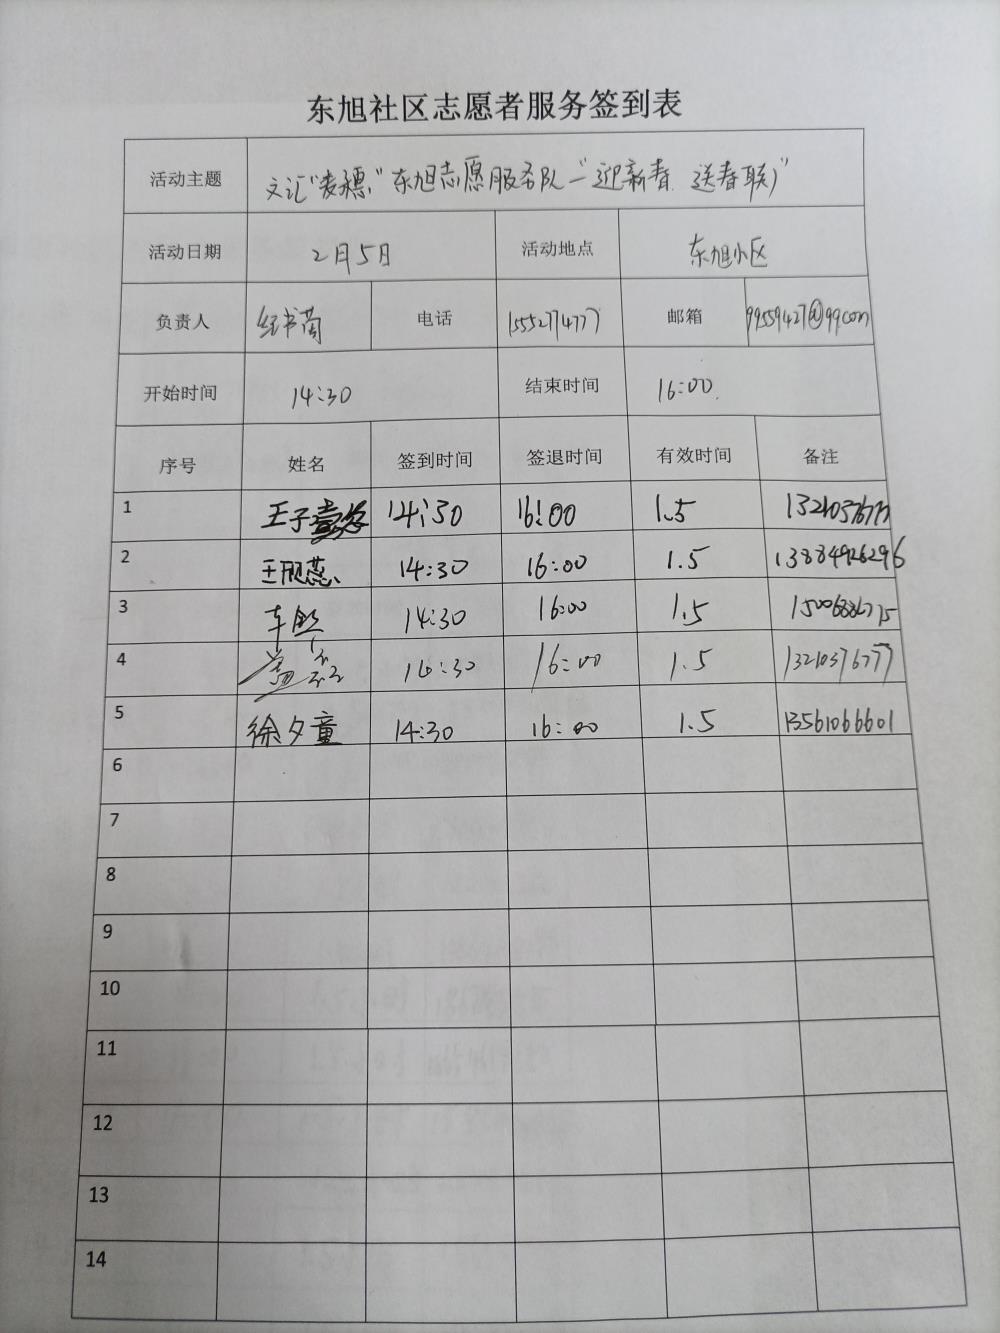 东旭社区志愿者服务签到表
活动主题 文汇"麦穗"东旭志愿服务队—"迎新春 送春联"
活动日期 2月5日 活动地点 东旭小区
负责人 电话 15552774777 邮箱 99559427@qq.com
开始时间 14:30 结束时间 16:00
序号 姓名 签到时间 签退时间 有效时间 备注
1 王子 14:30 16:00 1.5 13210376777
2 14:30 16:00 1.5 13884926296
3 车熙 14:30 16:00 1.5
4 16:30 16:00 1.5 13210376777
5 徐夕童 14:30 16:00 1.5 13561066601
6
7
8
9
10
11
12
13
14